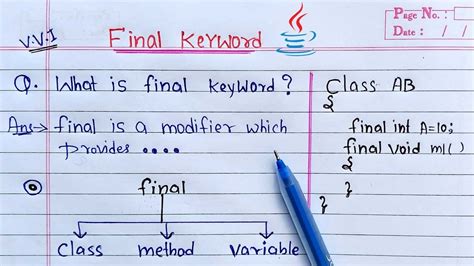 V.V.I
Final Keyword
Page No. :
Date : / /
Q. What is final keyword?
Ans → final is a modifier which
provides ....
final
Class method Variable
Class AB
{
final int A=10;
final void m1( )
{
}
}